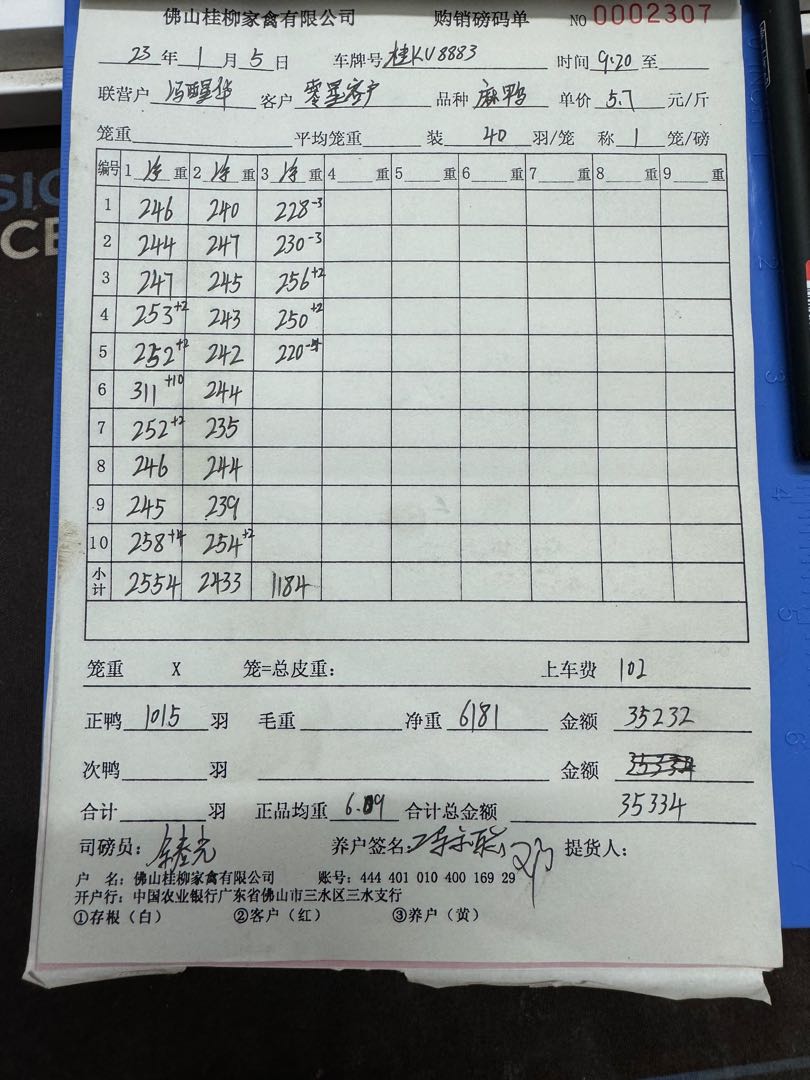 佛山桂柳家禽有限公司 购销磅码单 NO 0002307
23 年 1 月 5 日 车牌号 桂KV8883 时间 9:20 至
联营户 冯醒华 客户 零星客户 品种 麻鸭 单价 5.7 元/斤
笼重 平均笼重 装 40 羽/笼 称 1 笼/磅
编号 1 净 重 2 净 重 3 净 重 4 重 5 重 6 重 7 重 8 重 9 重
1 246 240 228-3
2 244 247 230-3
3 247 245 256+2
4 253+2 243 250+2
5 252+2 242 220
6 311+10 244
7 252+2 235
8 246 244
9 245 239
10 258+4 254+2
小计 2554 2433 1184
笼重 X 笼=总皮重: 上车费 102
正鸭 1015 羽 毛重 净重 6181 金额 35232
次鸭 羽 金额
合计 羽 正品均重 6.09 合计总金额 35334
司磅员: 养户签名: 提货人:
户 名: 佛山桂柳家禽有限公司 账号: 444 401 010 400 169 29
开户行: 中国农业银行广东省佛山市三水区三水支行
①存根(白) ②客户(红) ③养户(黄)